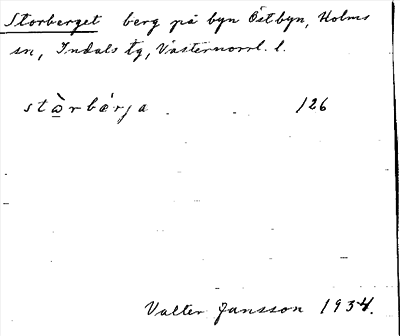 Storberget berg på byn Östbyn, Holms
sn, Indals tg, Västernorrl. l.
stɷ̀rbærja . 126
Valter Jansson 1934.